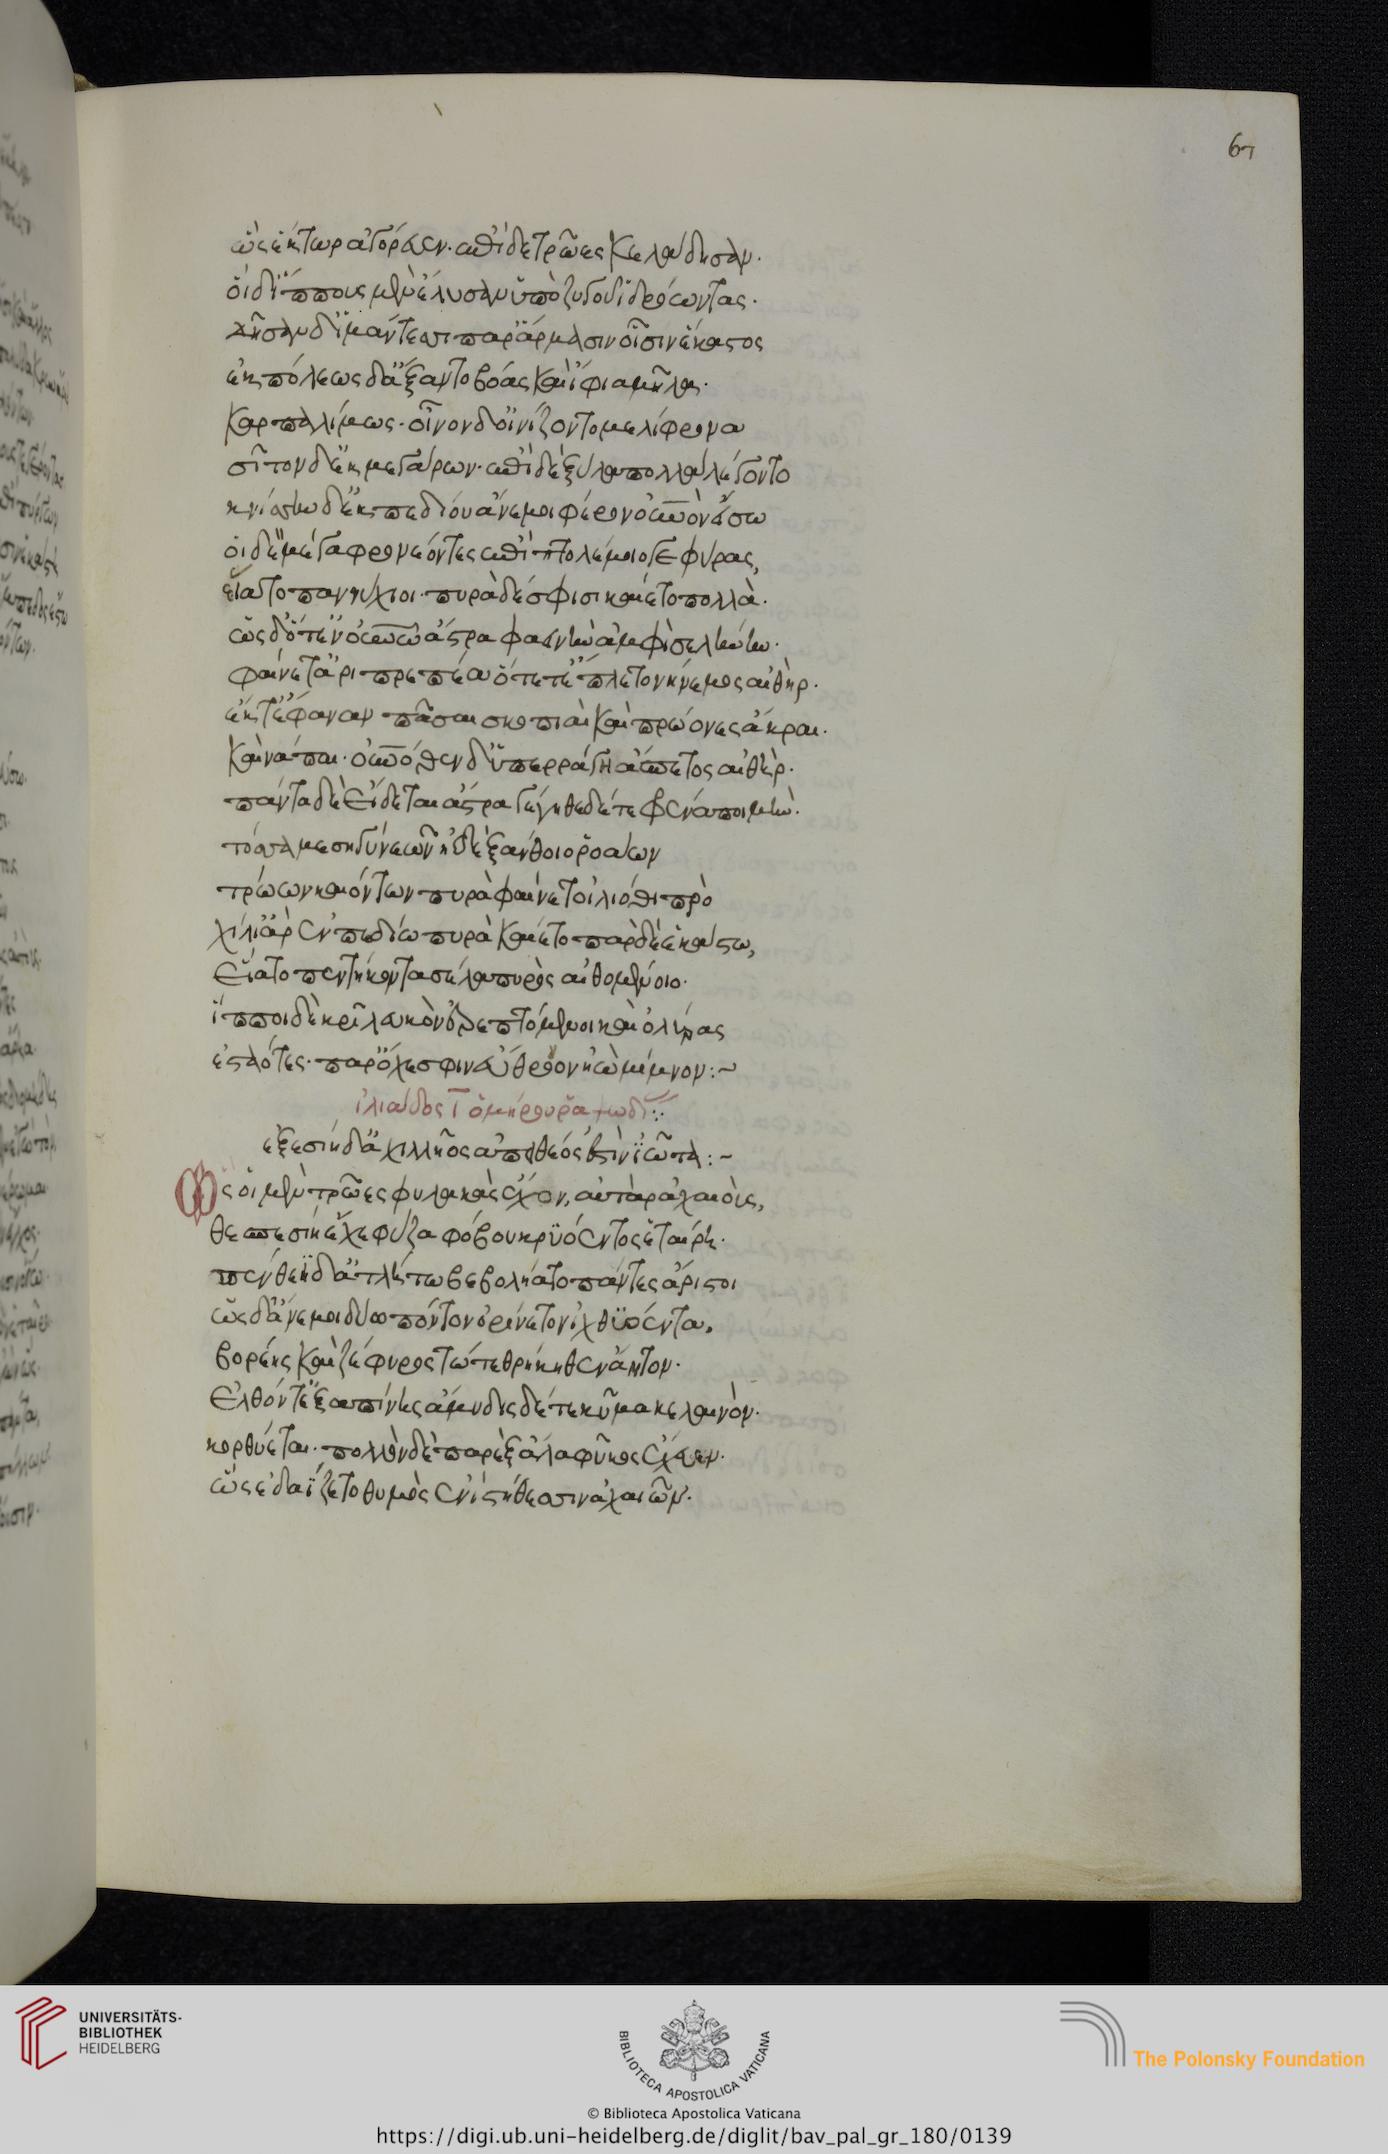 67
ὣς ἕκτωρ ἀγόρευεν. ἐπὶ δὲ τρῶες κελάδησαν.
οἱ δ' ἵππους μὲν ἔλυσαν ὑπὸ ζυγοῦ ἱδρώοντας.
δῆσαν δ' ἱμάντεσσι παρ' ἅρμασιν οἷσιν ἕκαστος
ἐκ πόλεως δ' ἄξαντο βόας καὶ ἴφια μῆλα.
καρπαλίμως. οἶνον δ' οἰνίζοντο μελίφρονα
σῖτον δ' ἐκ μεγάρων. ἐπὶ δὲ ξύλα πολλὰ λέγοντο
κνίσσην δ' ἐκ πεδίου ἄνεμοι φέρον οὐρανὸν εἴσω
οἱ δὲ μέγα φρονέοντες ἐπὶ πτολέμοιο γεφύρας,
εἵατο παννύχιοι. πυρὰ δέ σφισι καίετο πολλὰ.
ὡς δ' ὅτ' ἐν οὐρανῶ ἄστρα φαεινὴν ἀμφὶ σελήνην.
φαίνετ' ἀριπρεπέα ὅτε τ' ἔπλετο νήνεμος αἰθὴρ.
ἔκ τ' ἔφαναν πᾶσαι σκοπιαὶ καὶ πρώονες ἄκροι.
καὶ νάπαι. οὐρανόθεν δ' ὑπερράγη ἄσπετος αἰθὴρ.
πάντα δὲ εἴδεται ἄστρα γέγηθε δέ τε φρένα ποιμὴν.
τόσσα μεσηγὺ νεῶν ἠδὲ ξάνθοιο ῥοάων
τρώων καιόντων πυρὰ φαίνετο ἰλιόθι πρὸ
χίλι' ἄρ' ἐν πεδίω πυρὰ καίετο παρ δὲ ἑκάστω,
εἵατο πεντήκοντα σέλα πυρὸς αἰθομένοιο.
ἵπποι δὲ κρῖ λευκὸν ἐρεπτόμενοι καὶ ὀλύρας
ἑσταότες. παρ' ὄχεσφιν ἐΰθρονον ἠῶ μίμνον:~
ἰλιάδος ι ὁμήρου ῥαψωδί
ἐξεσίη δ' ἀχιλῆος ἀπειθέος ἐστὶν ἰῶτα:~
Ὣς οἱ μὲν τρῶες φυλακὰς ἔχον, αὐτὰρ ἀχαιοὺς,
θεσπεσίη ἔχε φύζα φόβου κρυόεντος ἑταίρη.
πένθεϊ δ' ἀτλήτω βεβολήατο πάντες ἄριστοι
ὡς δ' ἄνεμοι δύο πόντον ὀρίνετον ἰχθυόεντα,
βορέης καὶ ζέφυρος τώ τε θρήκηθεν ἄητον.
ἐλθόντ' ἐξαπίνης ἄμυδις δέ τε κῦμα κελαινὸν.
κορθύεται. πολλὸν δὲ παρὲξ ἅλα φῦκος ἔχευεν.
ὣς ἐδαΐζετο θυμὸς ἐνὶ στήθεσσιν ἀχαιῶν.
UNIVERSITÄTS-
BIBLIOTHEK
HEIDELBERG
BIBLIOTECA APOSTOLICA VATICANA
The Polonsky Foundation
© Biblioteca Apostolica Vaticana
https://digi.ub.uni-heidelberg.de/diglit/bav_pal_gr_180/0139